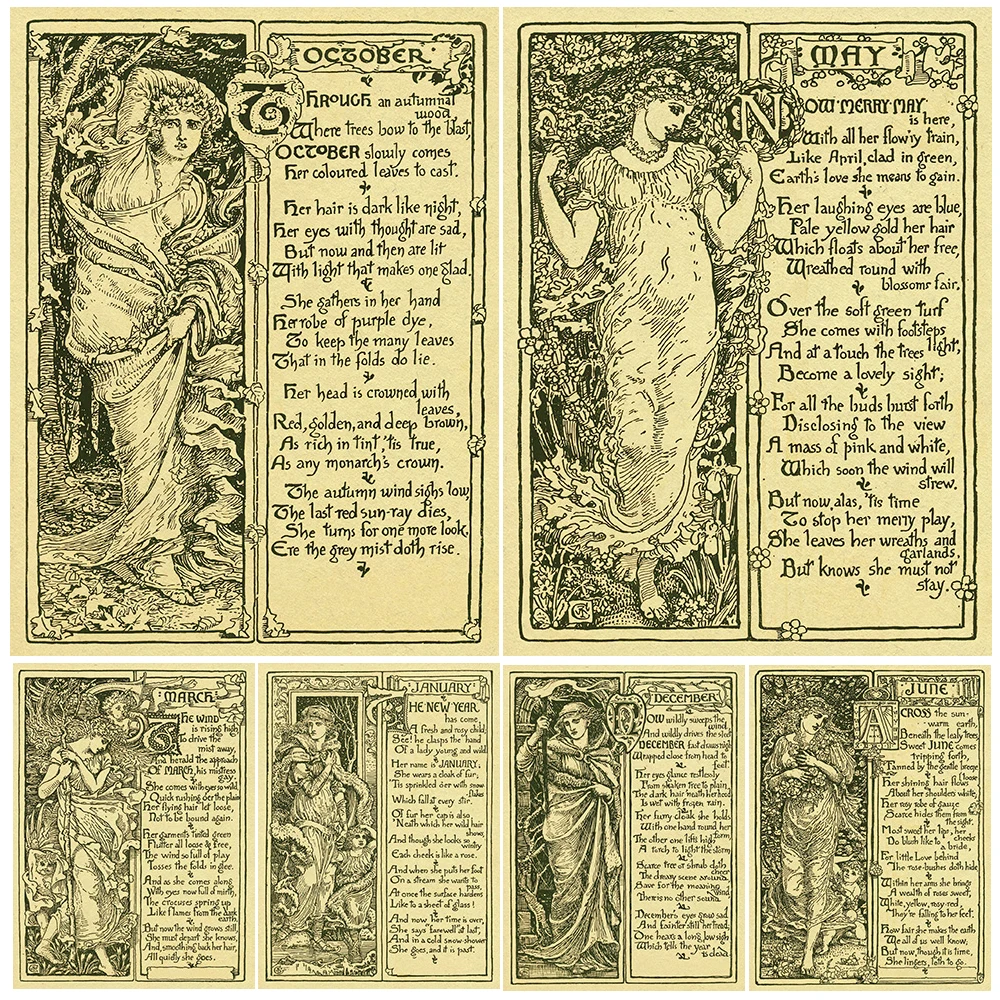 OCTOBER
THROUGH an autumnal
wood,
Where trees bow to the blast,
OCTOBER slowly comes
Her coloured leaves to cast.
Her hair is dark like night,
Her eyes with thought are sad,
But now and then are lit
With light that makes one glad.
She gathers in her hand
Her robe of purple dye,
To keep the many leaves
That in the folds do lie.
Her head is crowned with
leaves,
Red, golden, and deep brown,
As rich in tint, 'tis true,
As any monarch's crown.
The autumn wind sighs low,
The last red sun-ray dies,
She turns for one more look,
Ere the grey mist doth rise.
MAY
NOW MERRY MAY
is here,
With all her flow'ry train,
Like April, clad in green,
Earth's love she means to gain.
Her laughing eyes are blue,
Pale yellow gold her hair
Which floats about her free,
Wreathed round with
blossoms fair.
Over the soft green turf
She comes with footsteps
light,
And at a touch the trees
Become a lovely sight;
For all the buds burst forth
Disclosing to the view
A mass of pink and white,
Which soon the wind will
strew.
But now, alas, 'tis time
To stop her merry play,
She leaves her wreaths and
garlands,
But knows she must not
stay.
MARCH
THE WIND
is rising high
To drive the
mist away,
And herald the approach
OF MARCH, his mistress
gay.
She comes with eyes so wild,
Quick rushing o'er the plain
Her flying hair let loose,
Not to be bound again.
Her garments tinted green
Flutter all loose & free,
The wind so full of play
Tosses the folds in glee.
And as she comes along
With eyes now full of mirth,
The crocuses spring up
Like flames from the dark
earth.
But now the wind grows still,
She must depart she knows,
And, smoothing back her hair,
All quietly she goes.
JANUARY
THE NEW YEAR
has come,
A fresh and rosy child;
See! he clasps the hand
Of a lady young and wild
Her name is JANUARY,
She wears a cloak of fur,
'Tis sprinkled o'er with snow
flakes
Which fall at every stir.
Of fur her cap is also
'Neath which her wild hair
show,
And though she looks so
wintry
Each cheek is like a rose.
And when she puts her foot
On a stream she wants to
pass,
At once the surface hardens
Like to a sheet of glass!
And now her time is over,
She says "farewell" at last,
And in a cold snow-shower
She goes, and it is past.
DECEMBER
NOW wildly sweeps the
wind,
And wildly drives the sleet
DECEMBER fast draws nigh
Wrapped close from head to
feet.
Her eyes glance restlessly
From shaken tree to plain,
The dark hair neath her head
Is wet with frozen rain.
Her furry cloak she holds
With one hand round her
form,
The other one lifts high
A torch to light the storm
Scarce tree or shrub doth
cheer
The dreary scene around
Save for the moaning
wind
There is no other sound.
December's eyes grow sad
And fainter still her tread,
One hears a long, low sigh
Which tells the year
is dead.
JUNE
ACROSS the sun-
warm earth,
Beneath the leafy trees,
Sweet JUNE comes
tripping forth,
Fanned by the gentle breeze
Her shining hair flows loose
About her shoulders white,
Her rosy robe of gauze
Scarce hides them from
the sight.
Most sweet her lips, her
cheeks
Do blush like to a bride,
For little Love behind
The rose-bushes doth hide.
Within her arms she brings
A wealth of roses sweet,
White, yellow, rosy-red,
They're falling to her feet.
How fair she makes the earth
We all of us well know,
But now, though it is time,
She lingers, loth to go.